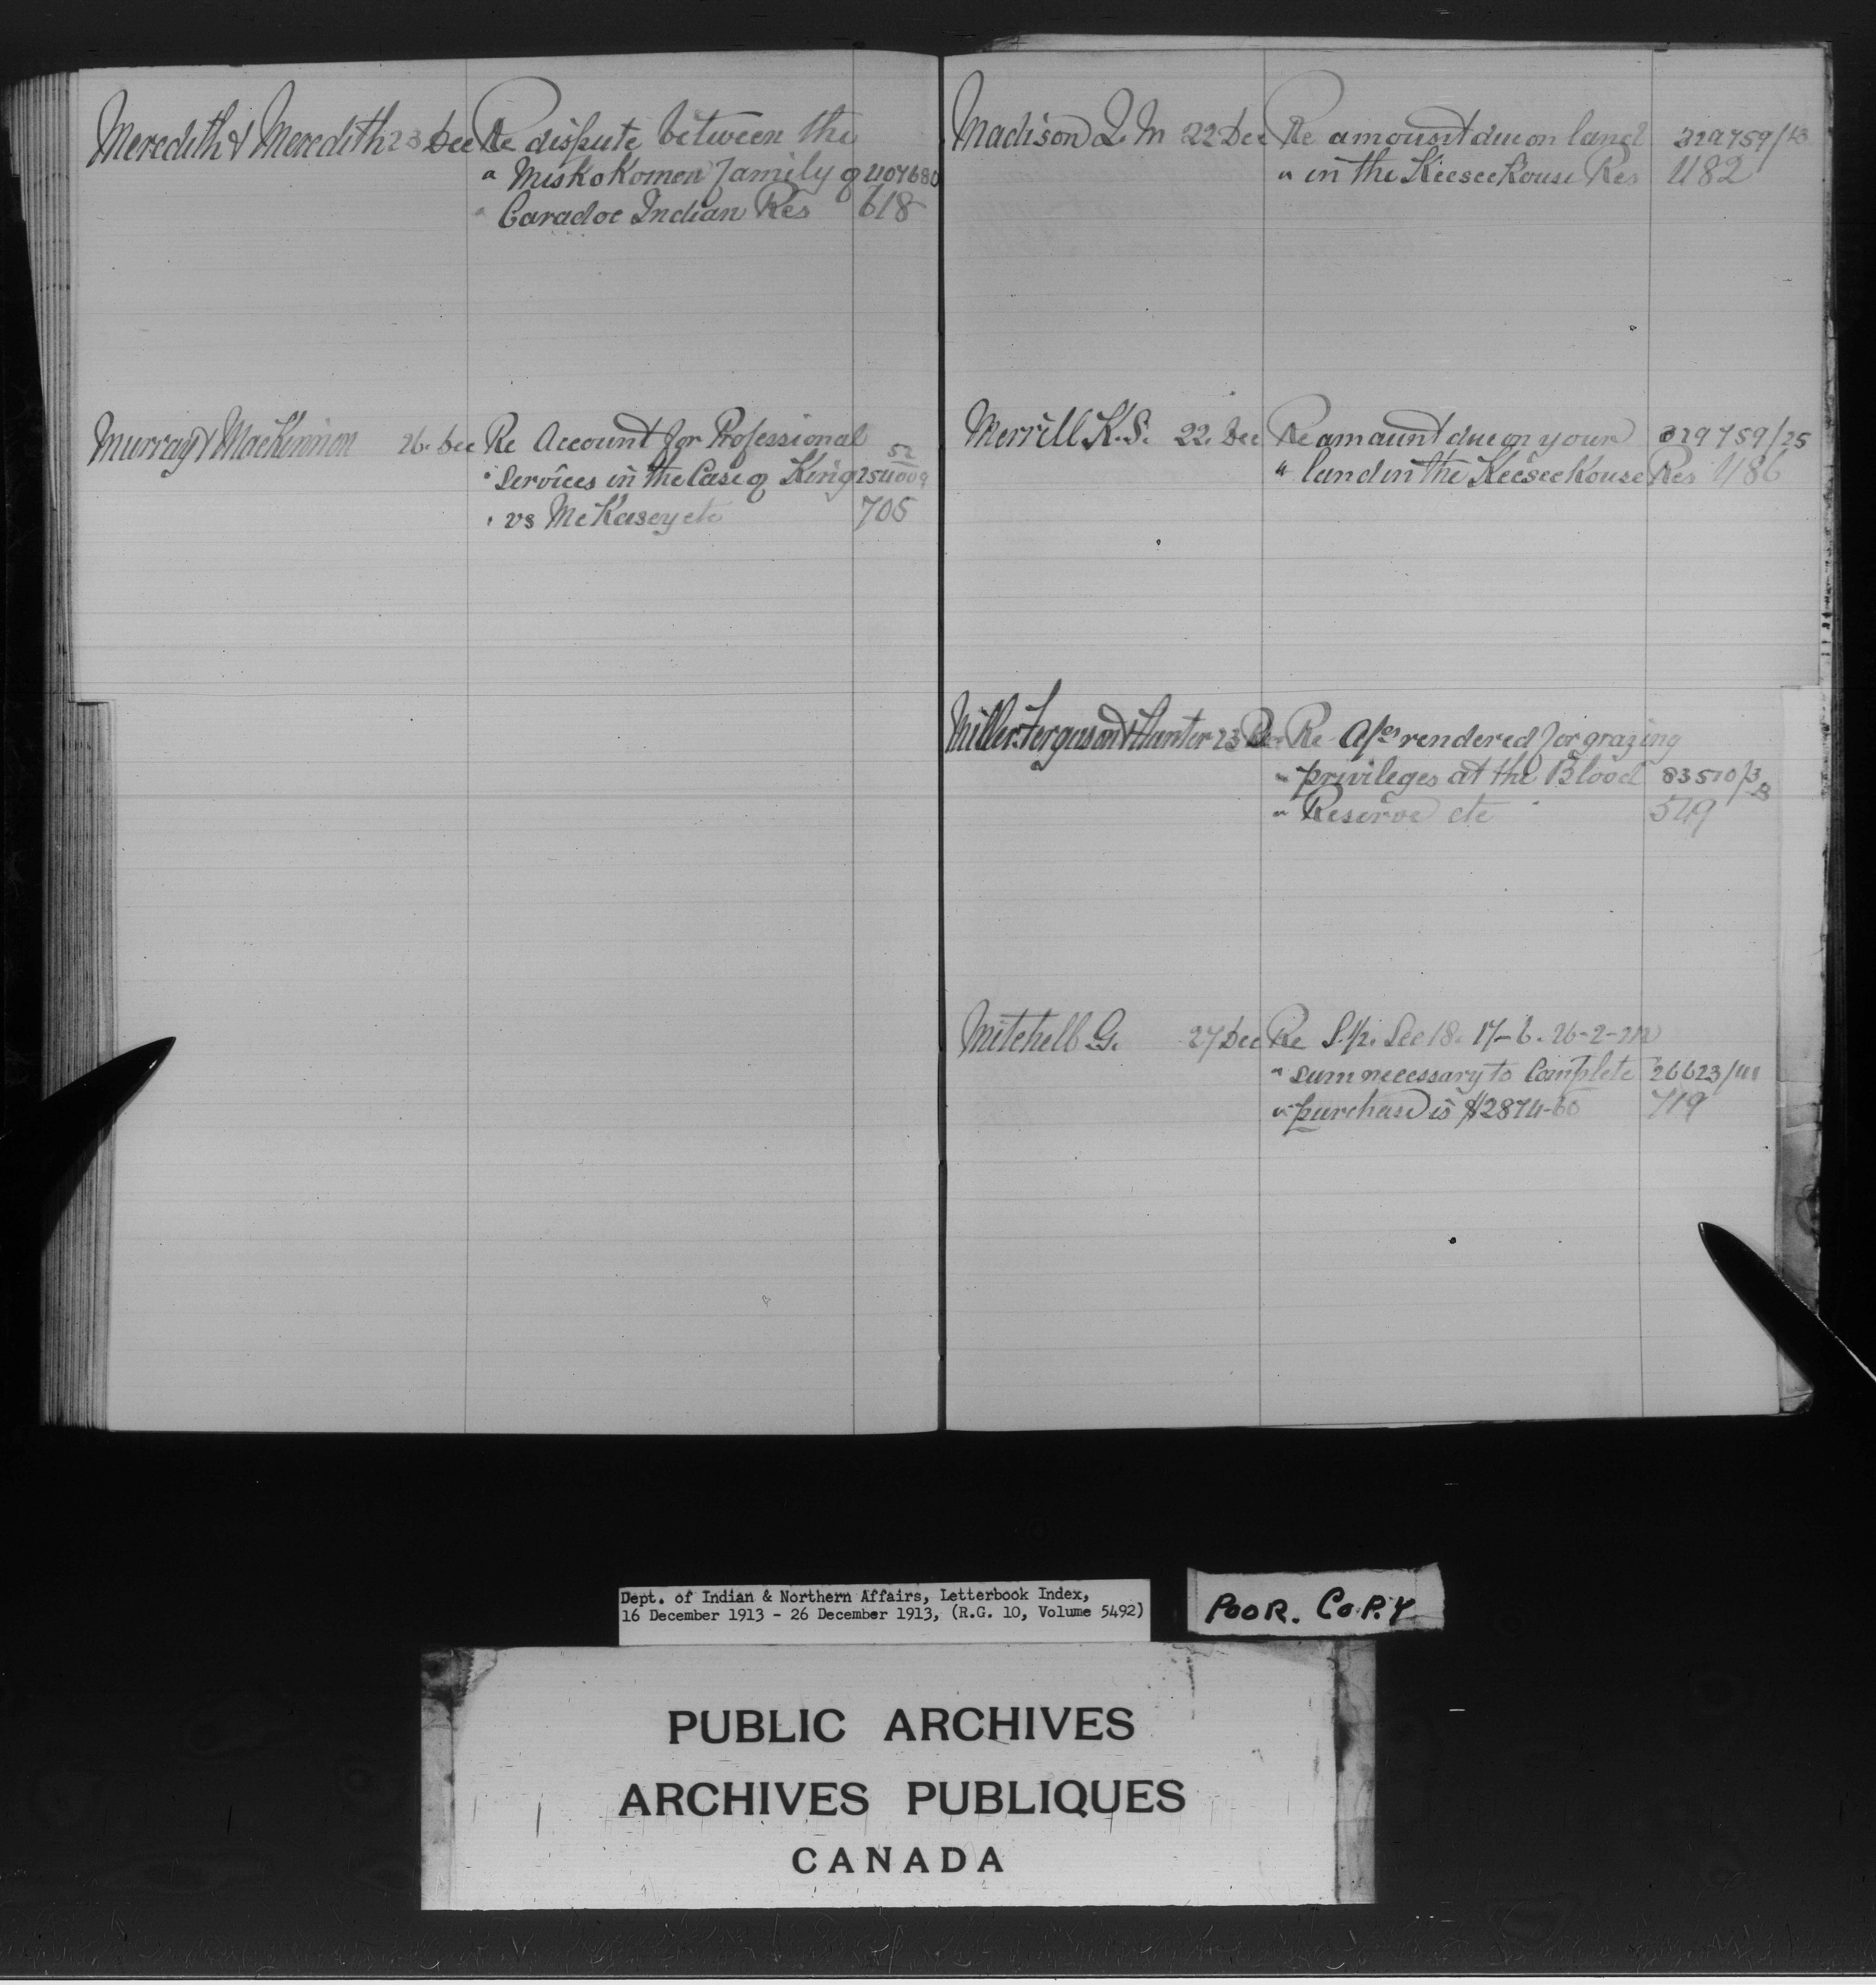 Meredith & Meredith 23 Dec Re dispute between the
" Miskokomen family of 407680
" Caradoc Indian Res 618
Murray & MacKinnon 26. Dec Re Account for Professional 52
" Services in the Case of King 254009
" vs McKasey etc 705
Madison L. M 22 Dec Re amount due on land 329759/13
" in the Keeseekouse Res 482
Merrill K. S. 22. Dec Re amount due on your 329759/25
" land in the Keeseekouse Res 486
Miller Ferguson & Hunter 23 Dec Re A/cs rendered for grazing
" privileges at the Blood 83510/3
" Reserve etc 549
Mitchell G. 27 Dec Re S. 1/2. Sec 18. 17-6. 26-2-
" sum necessary to Complete 26623/
" purchase is $2874-60 719
Dept. of Indian & Northern Affairs, Letterbook Index,
16 December 1913 - 26 December 1913, (R.G. 10, Volume 5492)
POOR. COPY
PUBLIC ARCHIVES
ARCHIVES PUBLIQUES
CANADA